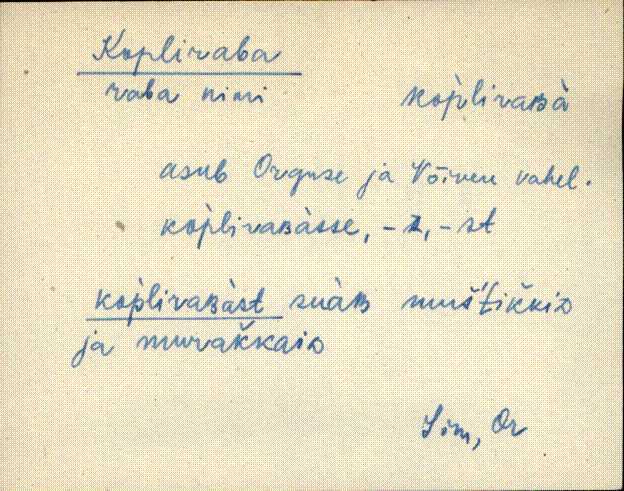 Kopliraba
raba nimi kop̀liraʙà
asub Orguse ja Võiveu vahel.
kop̀liraʙàsse, -s, -st
kop̀liraʙàst suàʙ muš't'ik̆kiᴅ
ja murak̆kaiᴅ
Sim, Or